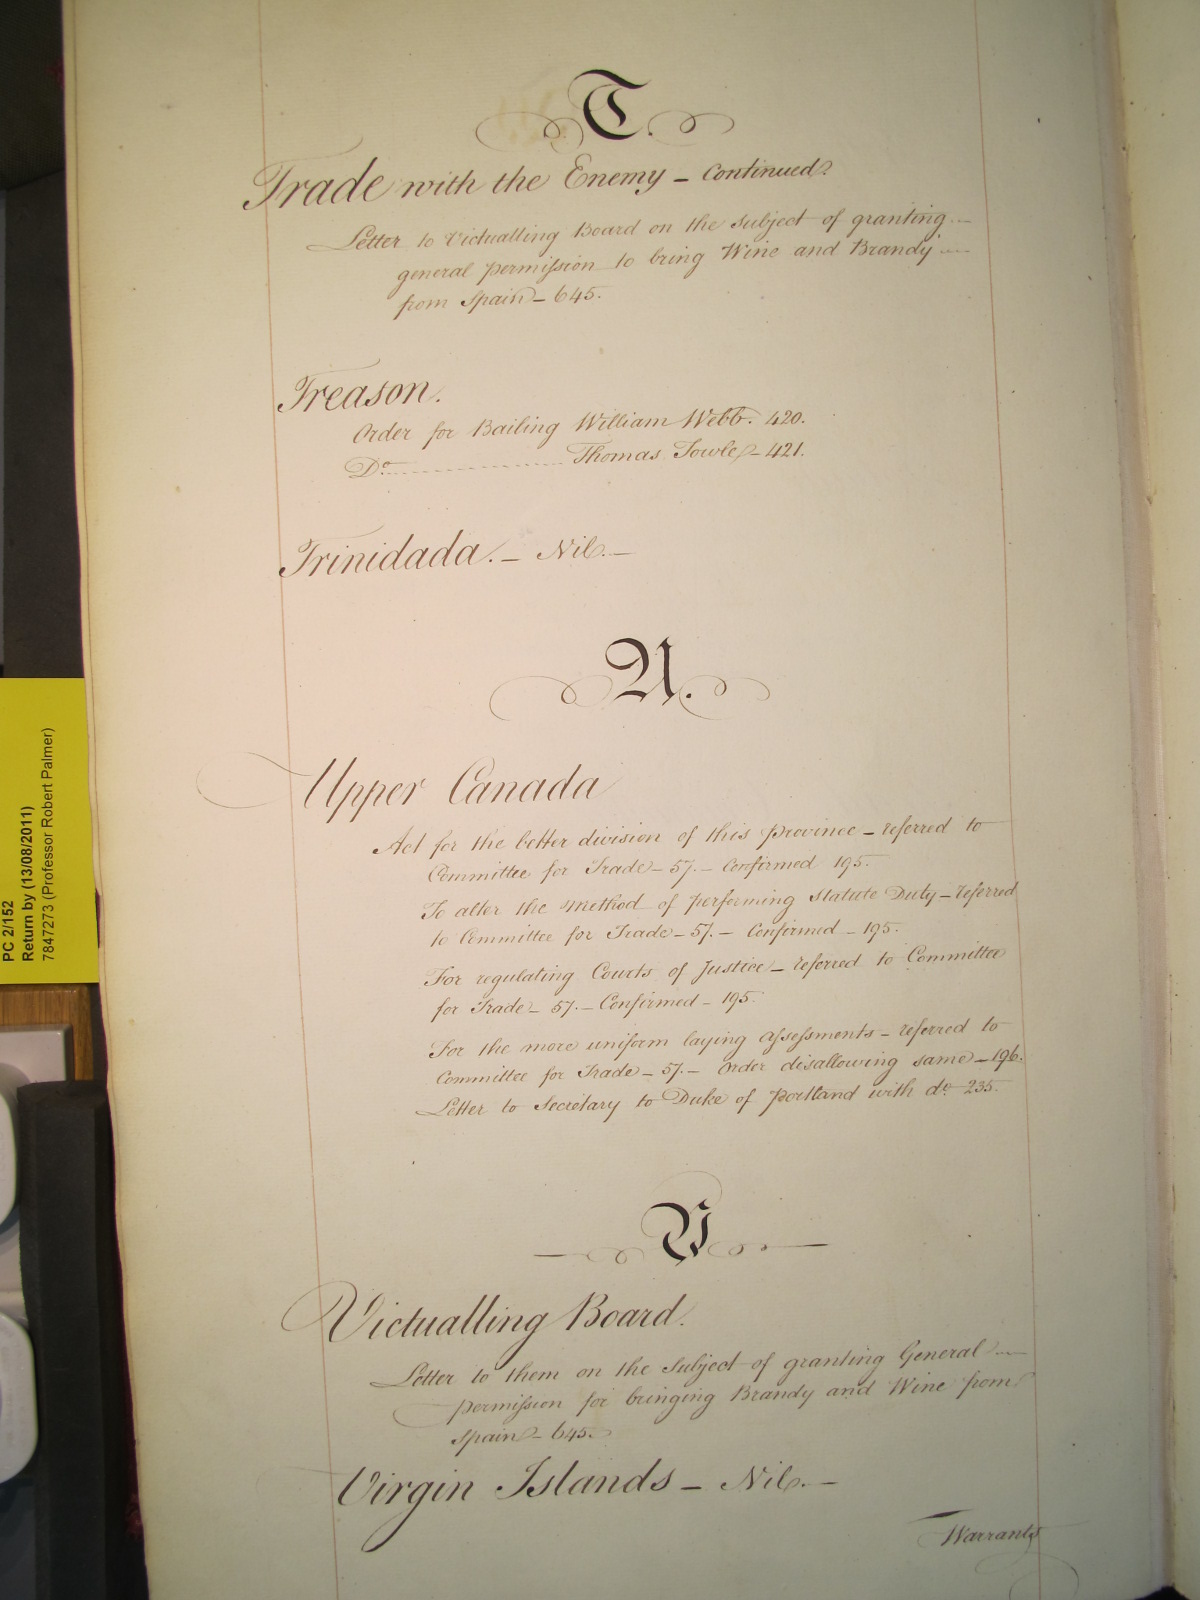 T.
Trade with the Enemy – Continued
Letter to Victualling Board on the subject of granting
general permission to bring Wine and Brandy
from Spain – 645.
Treason.
Order for Bailing William Webb. 420.
Do. Thomas Towle – 421.
Trinidada. – Nil. –
U.
Upper Canada
Act for the better division of this province – referred to
Committee for Trade – 57. – Confirmed 195.
To alter the method of performing Statute Duty – referred
to Committee for Trade – 57. – Confirmed – 195.
For regulating Courts of Justice – referred to Committee
for Trade – 57. – Confirmed – 195.
For the more uniform laying assessments – referred to
Committee for Trade – 57. – Order disallowing same – 196.
Letter to Secretary to Duke of Portland with do. 235.
V
Victualling Board.
Letter to them on the Subject of granting General
permission for bringing Brandy and Wine from
Spain – 645.
Virgin Islands – Nil. –
Warrants
PC 2/152
Return by (13/08/2011)
7847273 (Professor Robert Palmer)